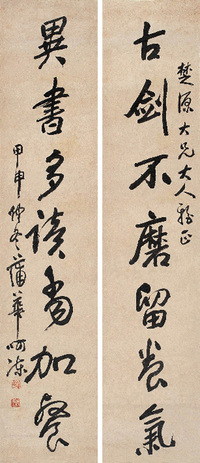 楚源大兄大人雅正
古劍不磨留養氣
異書多讀當加餐
甲申仲冬蒲華呵凍